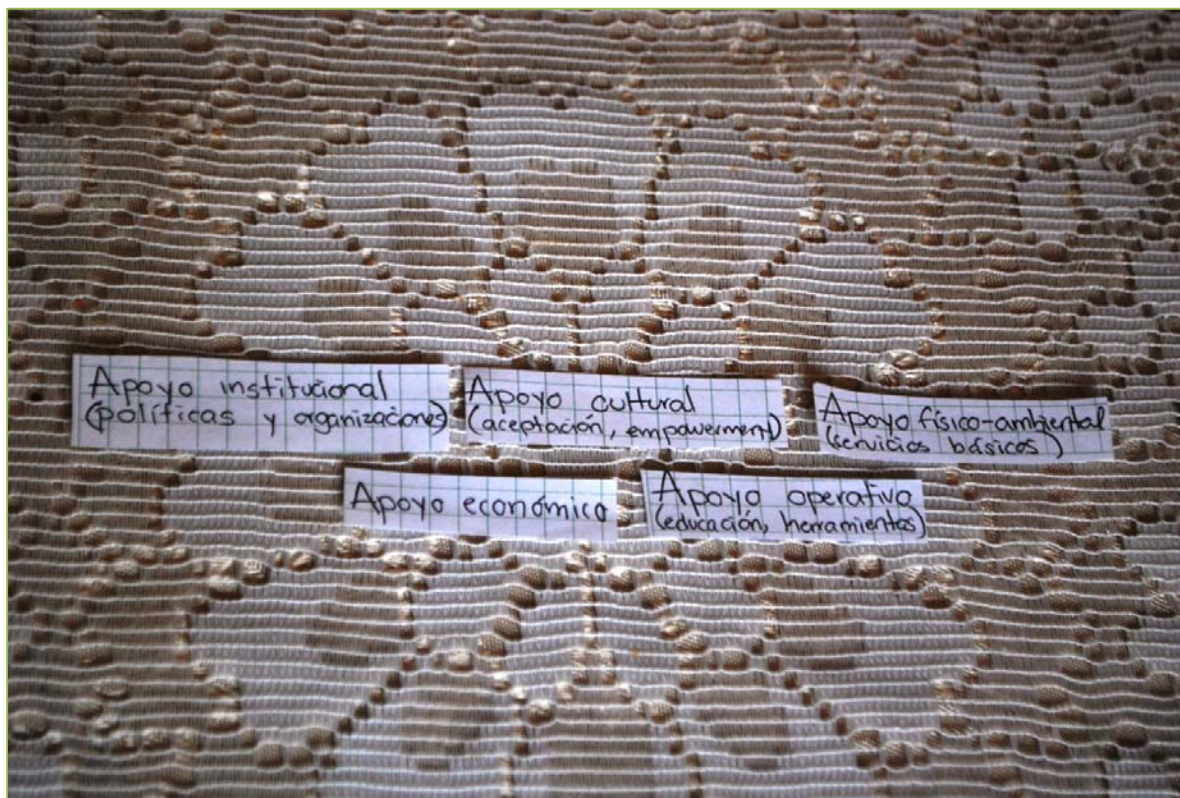 Apoyo institucional
(políticas y organizaciones)
Apoyo cultural
(aceptación, empowerment)
Apoyo físico-ambiental
(servicios básicos)
Apoyo económico
Apoyo operativo
(educación, herramientas)